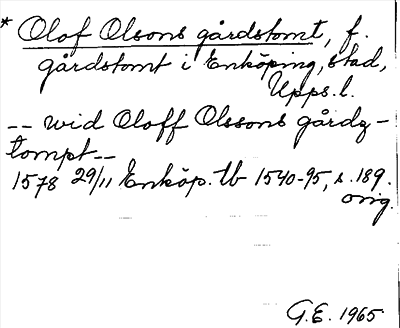 * Olof Olsons gårdstomt, f.
gårdstomt i Enköping, stad,
Upps. l.
-- wid Oloff Olssons gårdz-
tompt--
1578 29/11 Enköp. tb 1540-95, s. 189.
orig.
G.E. 1965